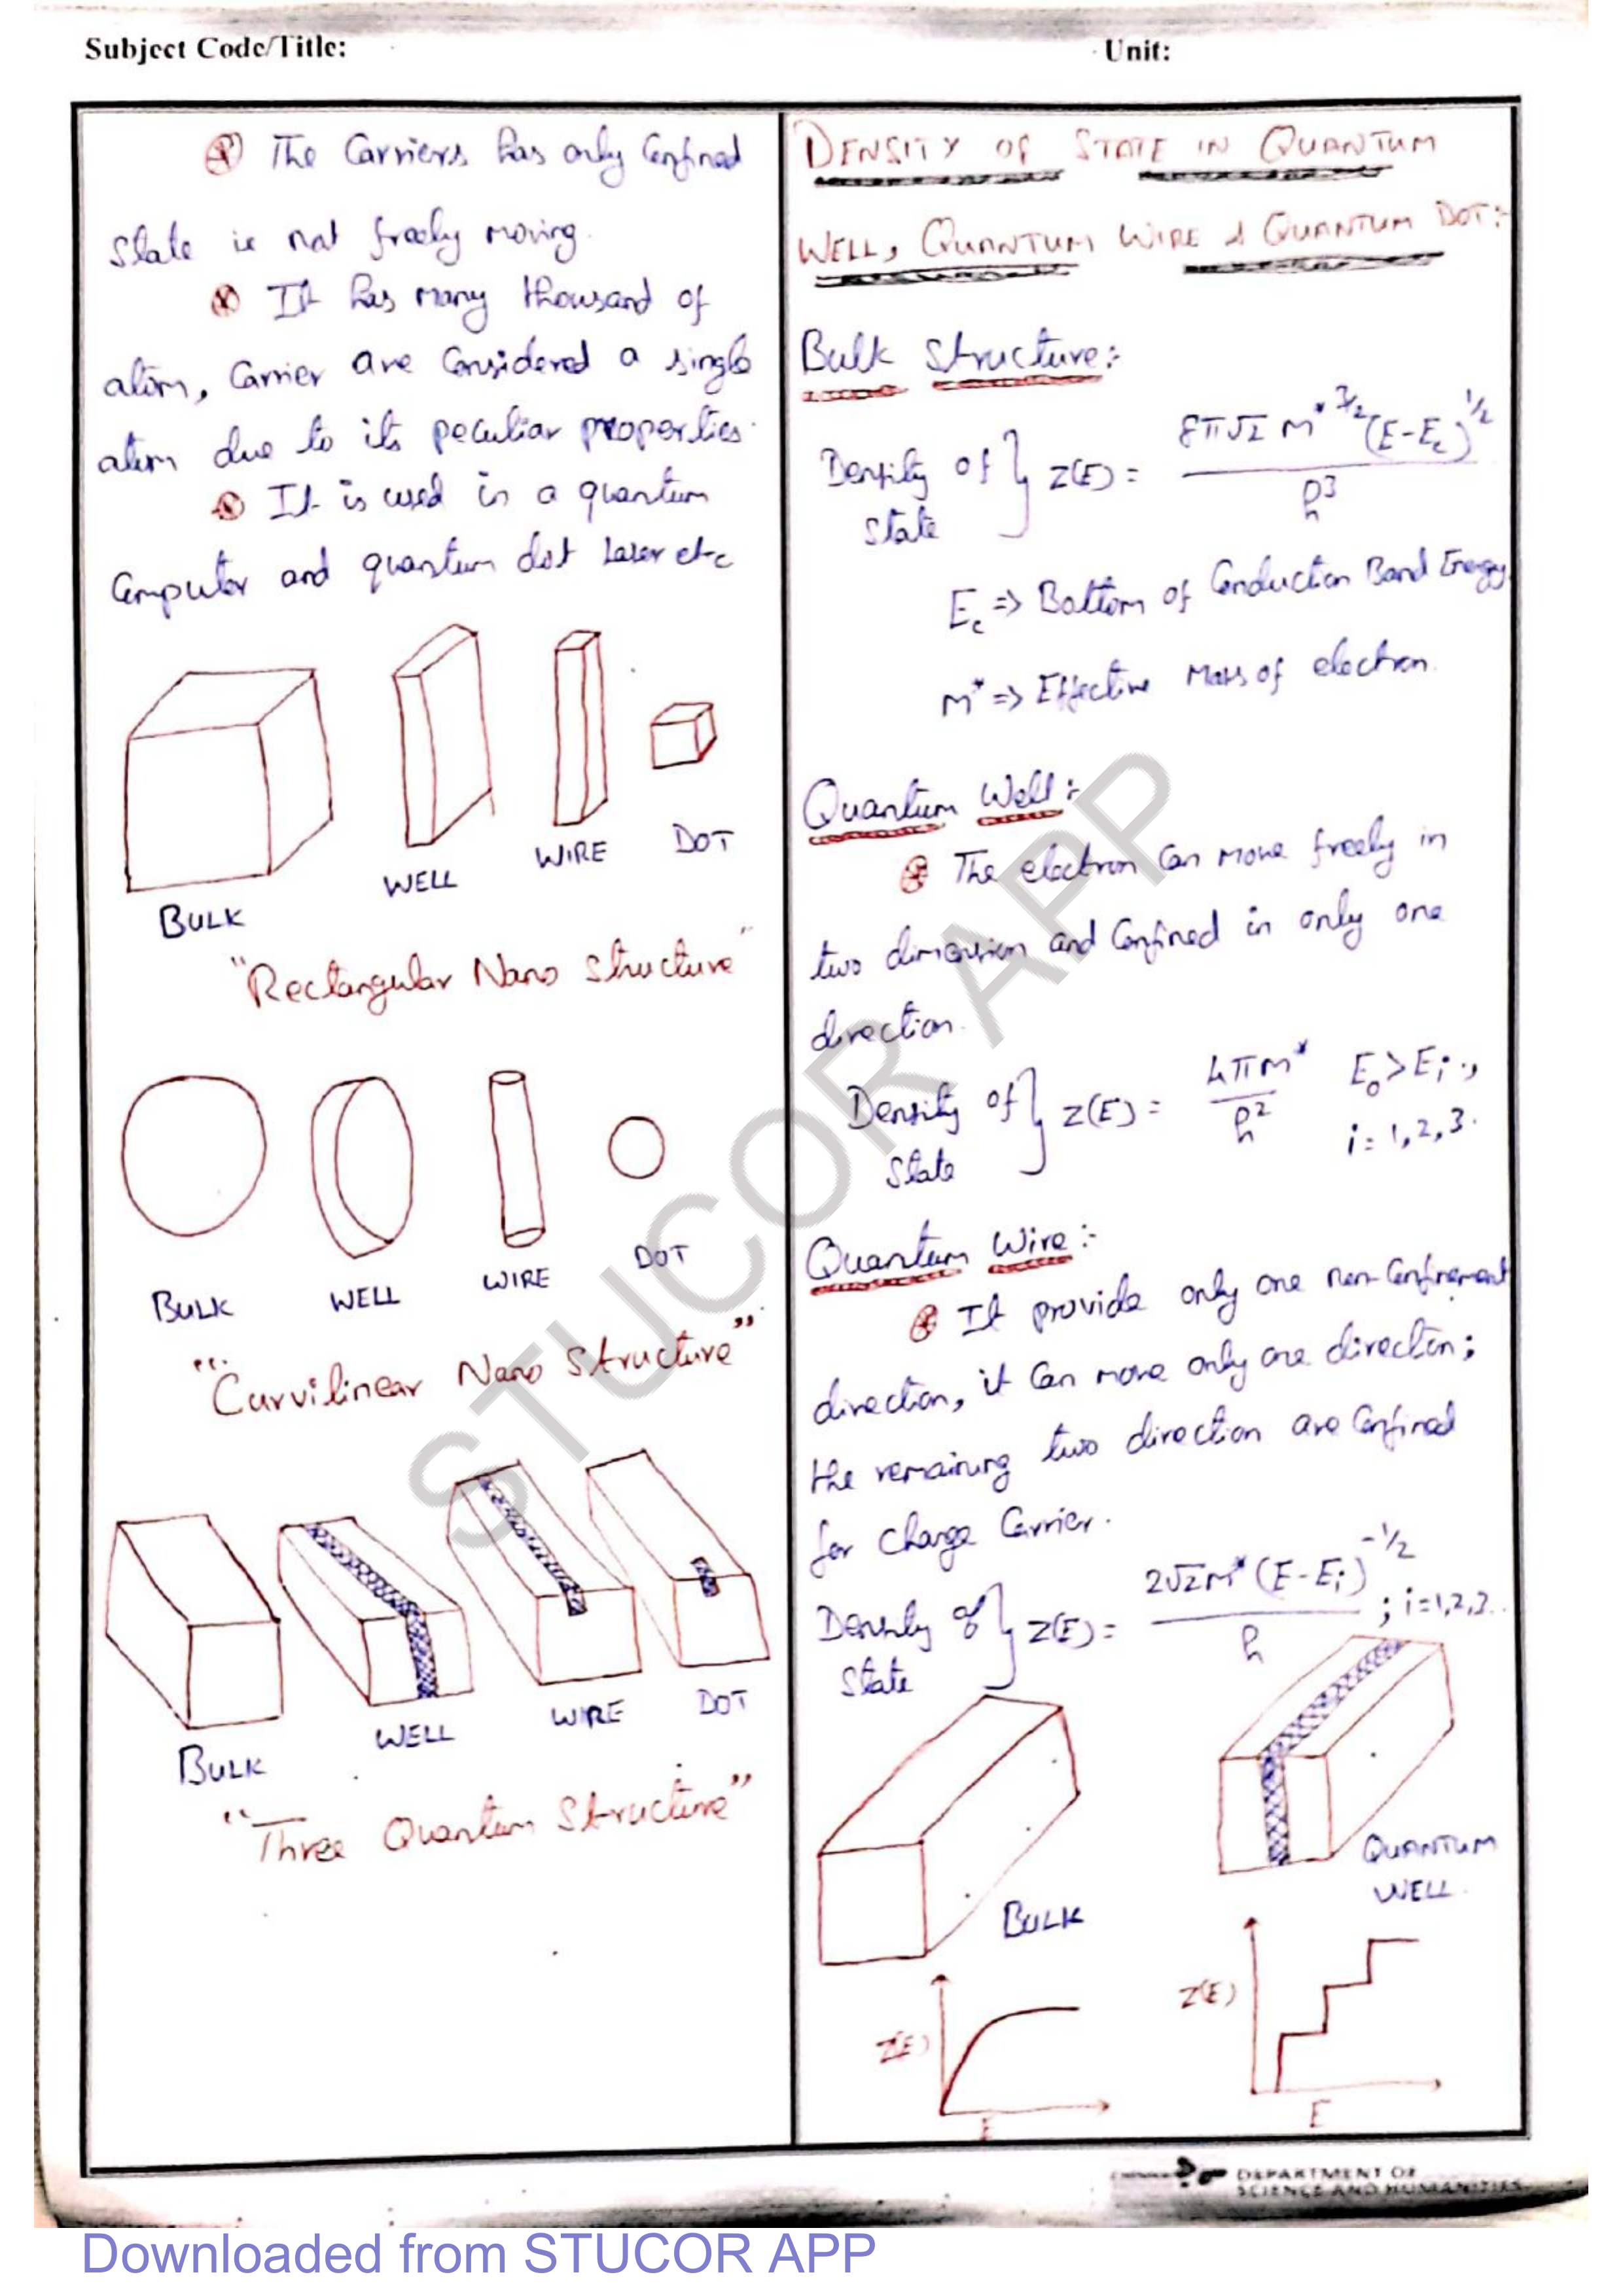 Subject Code/Title:
Unit:
The Carriers has only Confined
state is not freely moving.
It has many thousand of
atom, Carrier are Considered a single
atom due to its peculiar properties.
It is used in a quantum
Computer and quantum dot Laser etc
BULK
WELL
WIRE
DOT
"Rectangular Nano structure"
BULK
WELL
WIRE
DOT
"Curvilinear Nano Structure"
BULK
WELL
WIRE
DOT
"Three Quantum Structure"
DENSITY OF STATE IN QUANTUM
WELL, QUANTUM WIRE & QUANTUM DOT:-
Bulk Structure:-
Density of state } Z(E) = 8π√2 m*^3/2 (E-Ec)^1/2 / h^3
Ec => Bottom of Conduction Band Energy
m* => Effective Mass of electron.
Quantum Well:-
The electron Can move freely in
two dimension and Confined in only one
direction.
Density of State } Z(E) = 4πm* / h^2 E0 > Ei ,
i = 1, 2, 3.
Quantum Wire:-
It provide only one non-Confinement
direction, it Can move only one direction;
the remaining two direction are Confined
for Charge Carrier.
Density of State } Z(E) = 2√2m* (E-Ei)^-1/2 / h ; i=1,2,3..
BULK
QUANTUM
WELL
Z(E)
E
Z(E)
E
DEPARTMENT OF
SCIENCE AND HUMANITIES
STUCOR APP
Downloaded from STUCOR APP